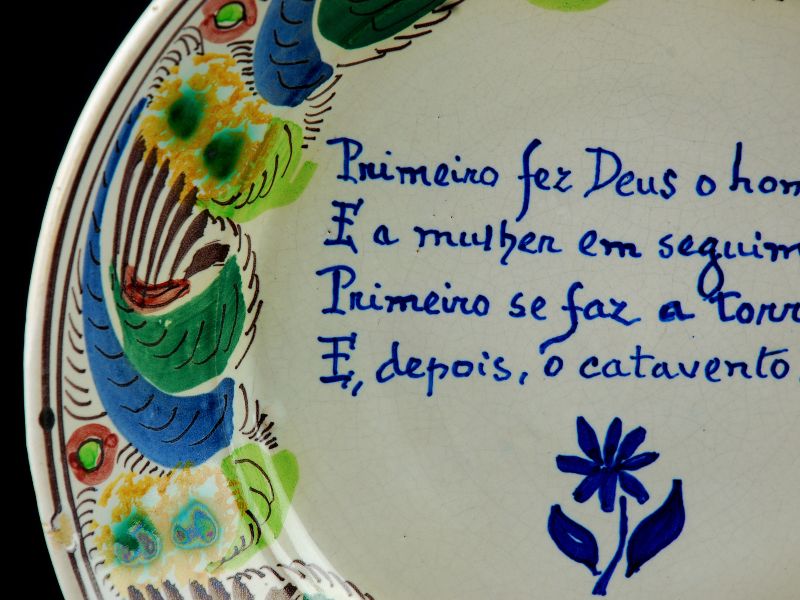 Primeiro fez Deus o hom
E a mulher em seguim
Primeiro se faz a torr
E, depois, o catavento.